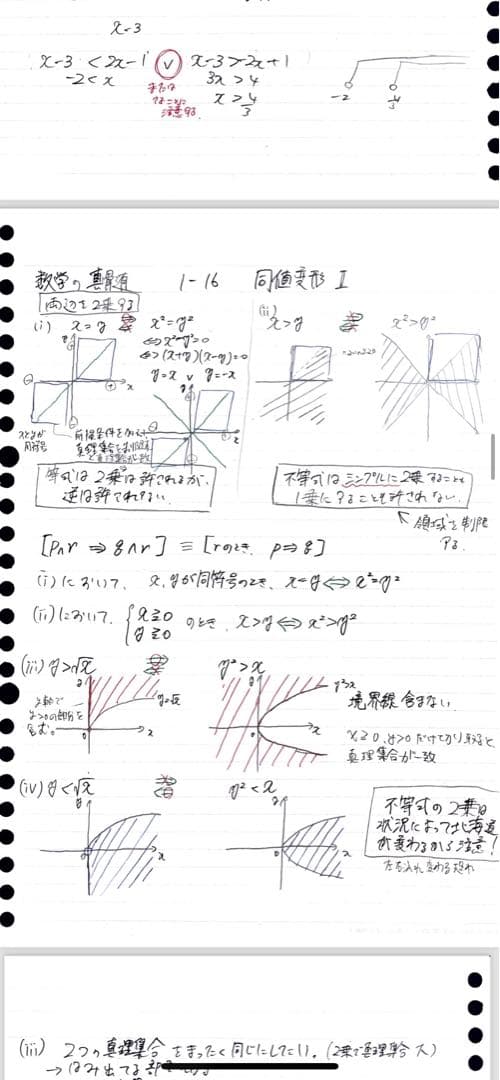 x-3
x-3 < 2x-1 ∨ x-3 > -2x+1
-2 < x または 3x > 4
注意する. x > 4/3
-2 4/3
数学の真髄 1-16 同値変形 Ⅱ
両辺を2乗する
(i) x = y x² = y²
⇔ x²-y²=0
⇔ (x+y)(x-y)=0
y=x ∨ y=-x
(ii) x>y x²>y²
xとyが同符号
前提条件を加えて
真理集合を
等式は2乗は許されるが、
逆は許されない.
不等式はシンプルに2乗することも
1乗にすることも許されない.
領域を制限する.
[p∧r ⇒ q∧r] ≡ [rのとき, p⇒q]
(i)において, x,yが同符号のとき, x=y ⇔ x²=y²
(ii)において, {x≧0 y≧0 のとき, x>y ⇔ x²>y²
(iii) y>√x y²>x
y=√x y²>x 境界線含まない
y軸で
y>0の部分を
含む.
x≧0, y>0だけで切り取ると
真理集合が一致
(iv) y<√x y²<x
不等式の2乗は
状況によって
が変わるから注意!
(iii) 2つの真理集合をまったく同じにしたい. (2乗で真理集合 大)
→ はみ出てる部